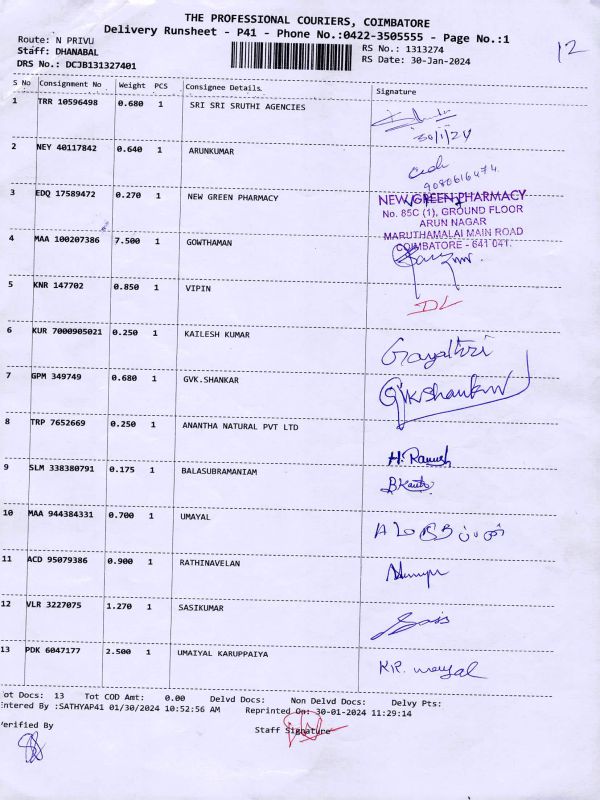 THE PROFESSIONAL COURIERS, COIMBATORE
Delivery Runsheet - P41 - Phone No.:0422-3505555 - Page No.:1
12
Route: N PRIVU
RS No.: 1313274
Staff: DHANABAL
RS Date: 30-Jan-2024
DRS No.: DCJB131327401
S No Consignment No Weight PCS Consignee Details. Signature
1 TRR 10596498 0.680 1 SRI SRI SRUTHI AGENCIES
30/1/24
2 NEY 40117842 0.640 1 ARUNKUMAR
9080616474
3 EDQ 17589472 0.270 1 NEW GREEN PHARMACY
NEW GREEN PHARMACY
No. 85C (1), GROUND FLOOR
ARUN NAGAR
MARUTHAMALAI MAIN ROAD
COIMBATORE - 641 041.
4 MAA 100207386 7.500 1 GOWTHAMAN
5 KNR 147702 0.850 1 VIPIN
DL
6 KUR 7000905021 0.250 1 KAILESH KUMAR
Gayathri
7 GPM 349749 0.680 1 GVK.SHANKAR
GVKShankar
8 TRP 7652669 0.250 1 ANANTHA NATURAL PVT LTD
H. Ramesh
9 SLM 338380791 0.175 1 BALASUBRAMANIAM
10 MAA 944384331 0.700 1 UMAYAL
11 ACD 95079386 0.900 1 RATHINAVELAN
12 VLR 3227075 1.270 1 SASIKUMAR
13 PDK 6047177 2.500 1 UMAIYAL KARUPPAIYA
ot Docs: 13 Tot COD Amt: 0.00 Delvd Docs: Non Delvd Docs: Delvy Pts:
Entered By :SATHYAP41 01/30/2024 10:52:56 AM Reprinted On: 30-01-2024 11:29:14
Staff Signature
Verified By